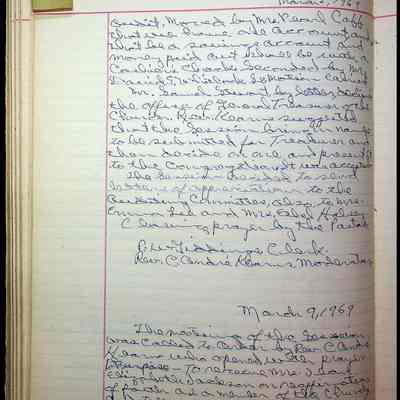 March 2, 1969
Moved by Mrs. Pearl Cabb
that we have one account and
that be a savings account and
money paid out shall be with a
Cashier's Check Seconded by Mr.
David Motion carried
Mr. Samuel Stewart, by letter
the office of General Treasurer of the
Church. Rev. Kearns suggested
that the Session bring in names
to be submitted for Treasurer and
then decide on one, and present it
to the Congregation, it was accepted
The Session decided to send
letters of appreciation to the
Committee, also, to Mrs.
Emma Lee and Mrs. Ethel Holsey
Closing prayer by the Pastor
Giddings, Clerk
Rev. C. Andre Kearns, Moderator
March 9, 1969
The meeting of the Session
was called to order by Rev. C. Andre
Kearns who opened with prayer
Purpose - To receive Mrs.
Jackson on reaffirmation
of faith as a member of the Church